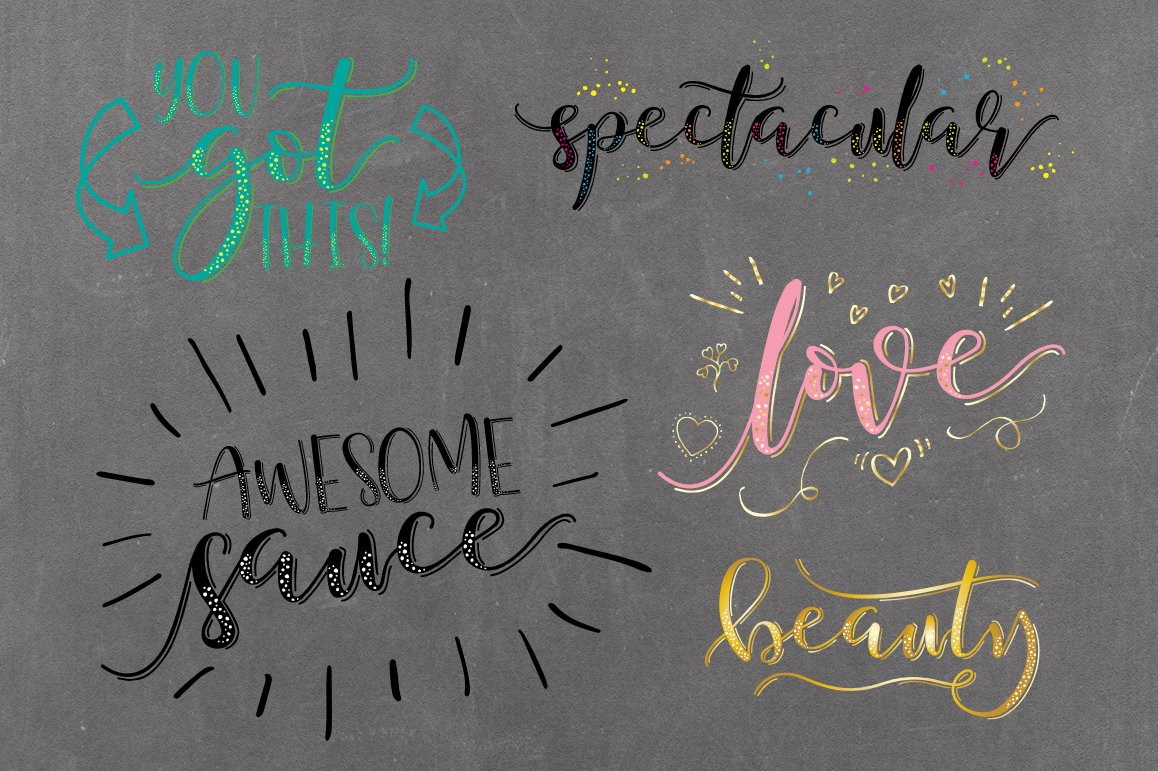 YOU
got
THIS!
spectacular
AWESOME
sauce
love
beauty